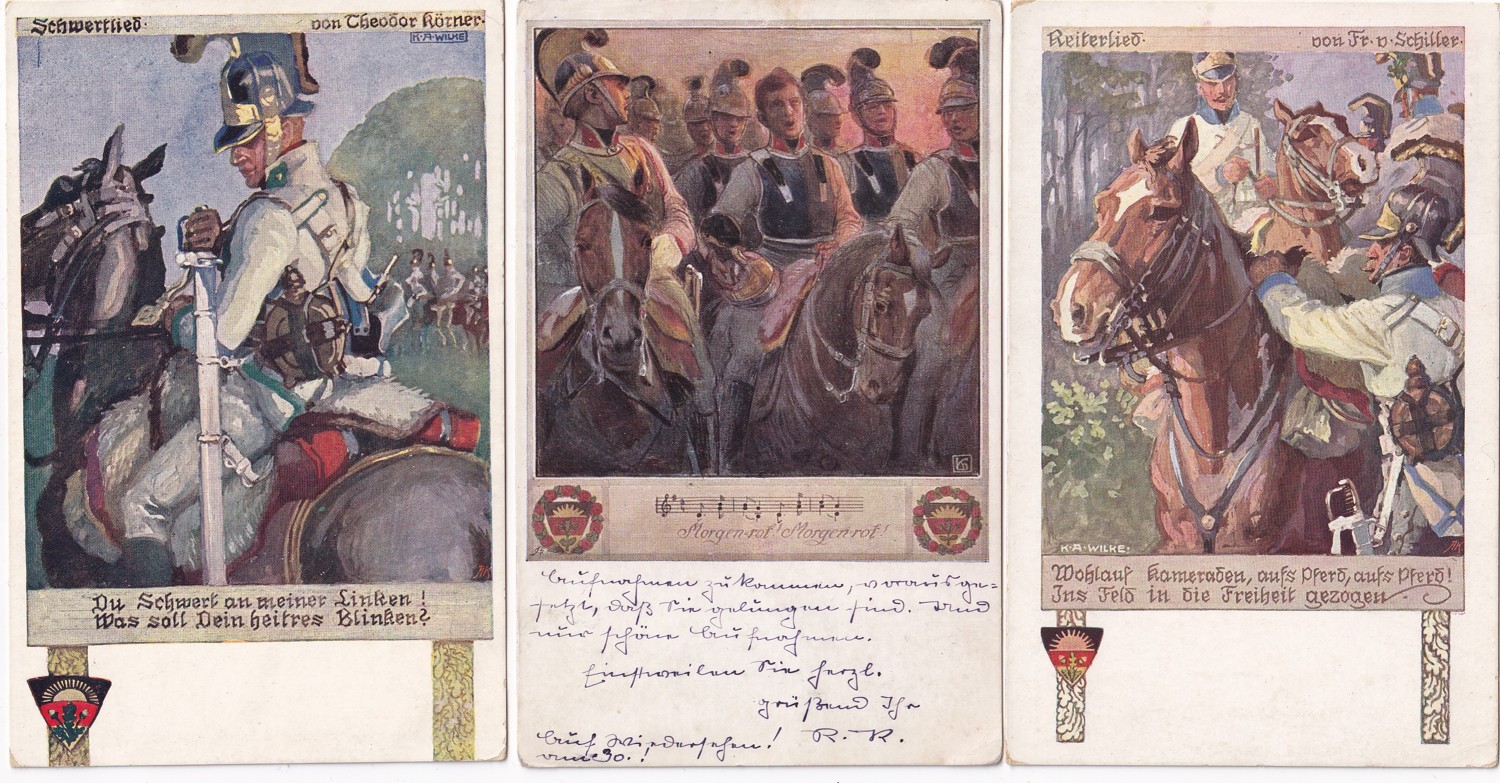 Schwertlied· von Theodor Körner·
K·A·WILKE
Du Schwert an meiner Linken!
Was soll Dein heitres Blinken?
Morgen-rot! Morgen-rot!
Aufnahmen zu kommen, vorausge=
setzt, daß Sie gelungen sind. Und
nur schöne Aufnahmen.
Einstweilen Sie herzl.
grüßend Ihr
R. R.
Auf Wiedersehen!
am 30.!
Reiterlied· von Fr. v. Schiller·
K·A·WILKE·
Wohlauf Kameraden, aufs Pferd, aufs Pferd!
Ins Feld in die Freiheit gezogen